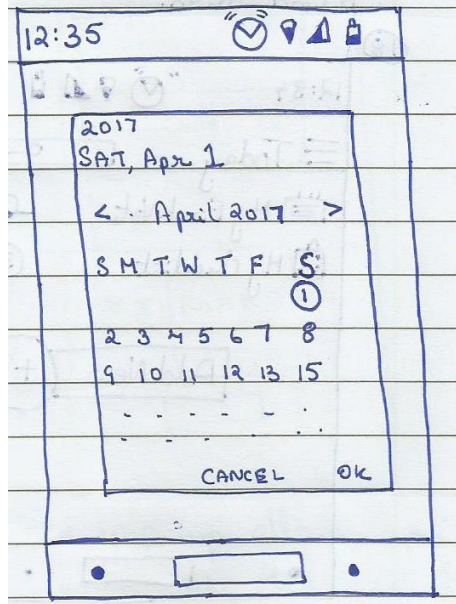 12:35
2017
SAT, Apr 1
< April 2017 >
S M T W T F S
1
2 3 4 5 6 7 8
9 10 11 12 13 15
CANCEL OK